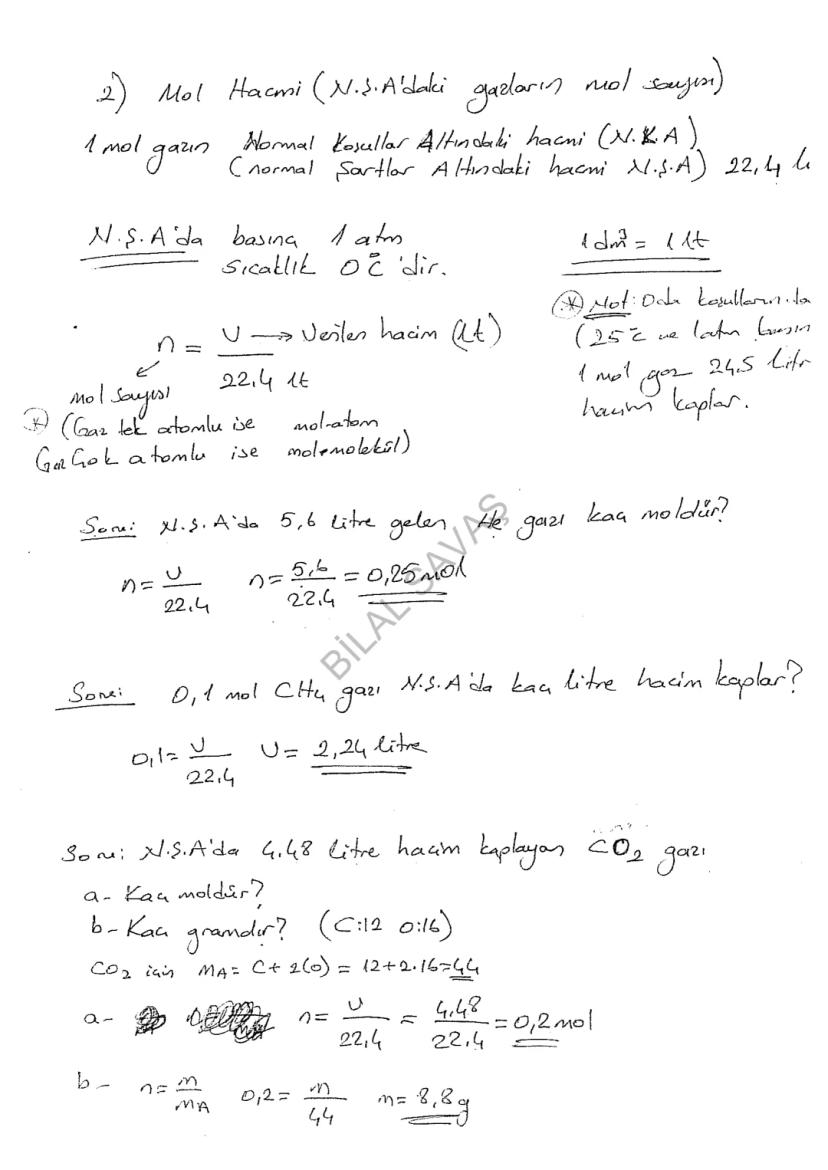 2) Mol Hacmi (N.Ş.A'daki gazların mol sayısı)
1 mol gazın Normal Koşullar Altındaki hacmi (N.K.A)
(normal Şartlar Altındaki hacmi N.Ş.A) 22,4 lt
N.Ş.A'da basınç 1 atm
sıcaklık 0°C'dir.
1 dm³ = 1 lt
n = V → Verilen hacim (lt)
22,4 lt
mol sayısı
(Gaz tek atomlu ise mol-atom
Gaz Çok atomlu ise mol-molekül)
Not: Oda koşullarında
(25°C ve 1 atm basınç
1 mol gaz 24,5 litre
hacim kaplar.
Soru: N.Ş.A'da 5,6 litre gelen He gazı kaç moldür?
n = V/22,4 n = 5,6/22,4 = 0,25 mol
BİLAL SAVAŞ
Soru: 0,1 mol CH4 gazı N.Ş.A'da kaç litre hacim kaplar?
0,1 = V/22,4 V = 2,24 litre
Soru: N.Ş.A'da 4,48 litre hacim kaplayan CO2 gazı
a- Kaç moldür?
b- Kaç gramdır? (C:12 O:16)
CO2 için MA = C + 2(O) = 12+2.16=44
a- n = V/22,4 = 4,48/22,4 = 0,2 mol
b- n = m/MA 0,2 = m/44 m = 8,8 g